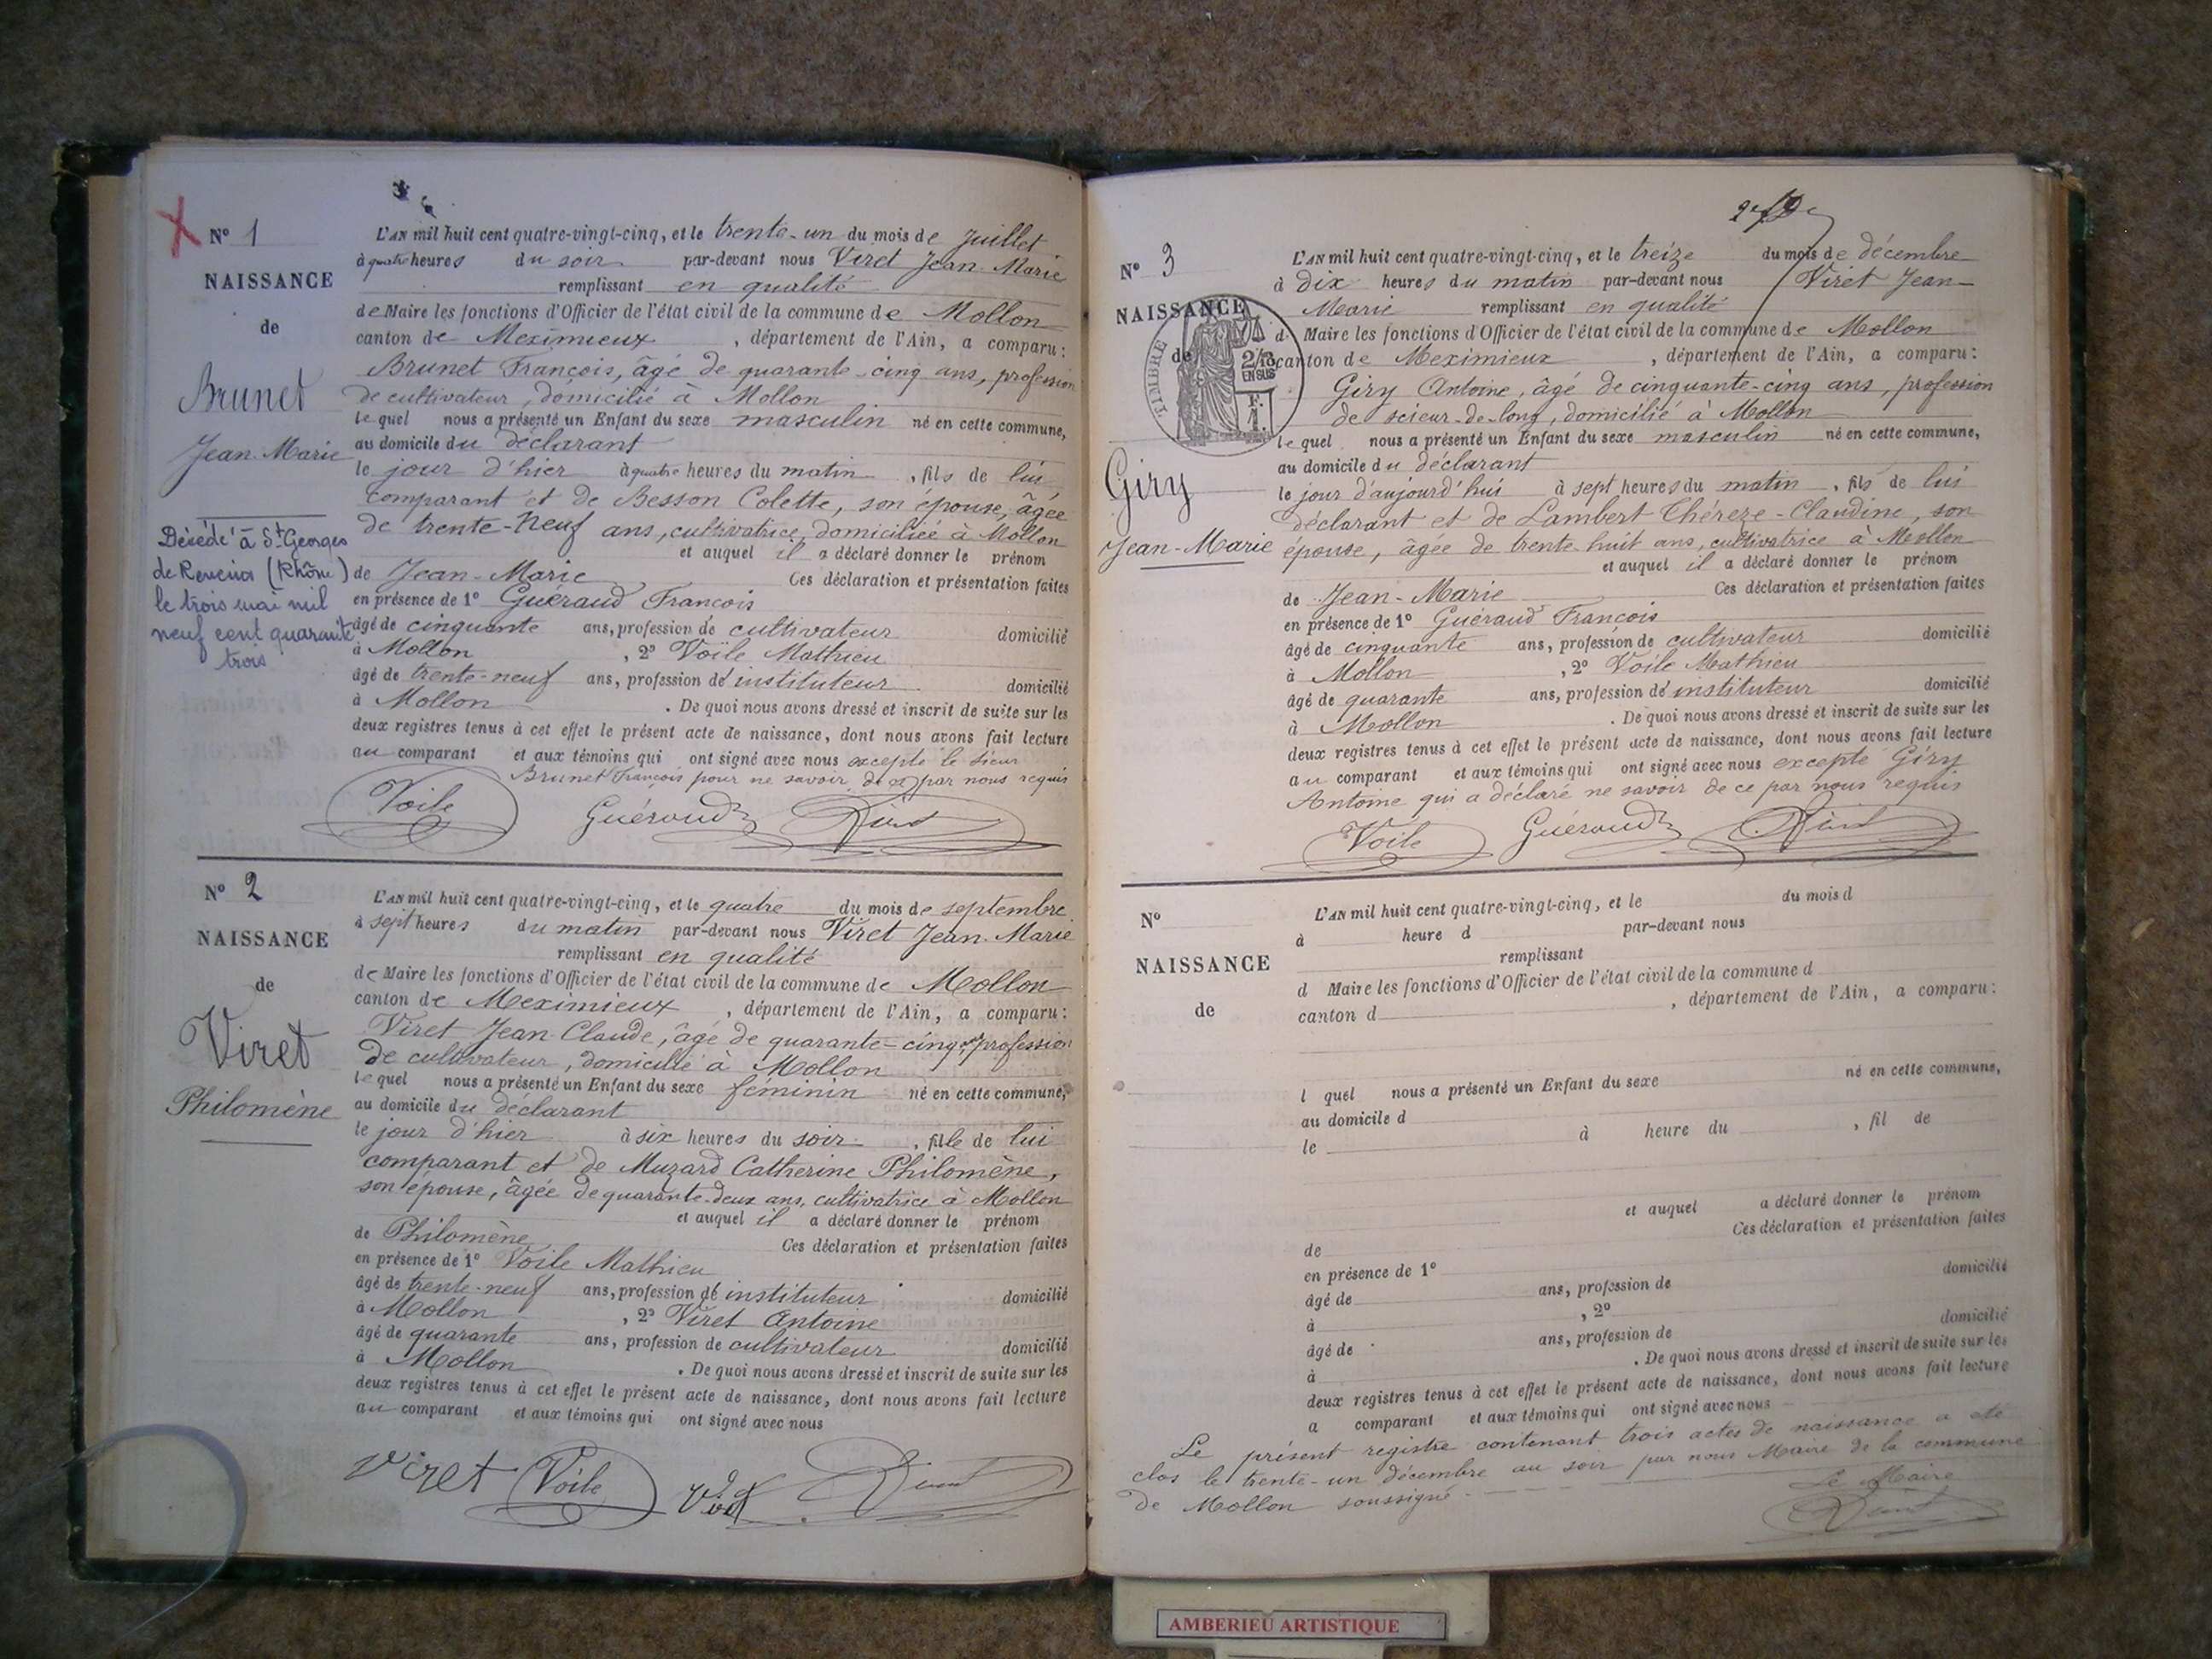 N° 1
NAISSANCE
de
Brunet
Jean-Marie
Décédé à St Georges
de Reneins (Rhône)
le trois mai mil
neuf cent quarante
trois
L'AN mil huit cent quatre-vingt-cinq, et le trente-un du mois de Juillet
à quatre heures du soir par-devant nous Viret Jean-Marie
remplissant en qualité
de Maire les fonctions d'Officier de l'état civil de la commune de Mollon
canton de Meximieux, département de l'Ain, a comparu:
Brunet François, âgé de quarante-cinq ans, profession
de cultivateur, domicilié à Mollon
lequel nous a présenté un Enfant du sexe masculin né en cette commune,
au domicile du déclarant
le jour d'hier à quatre heures du matin, fils de lui
comparant et de Besson Colette, son épouse, âgée
de trente-neuf ans, cultivatrice, domiciliée à Mollon
et auquel il a déclaré donner le prénom
de Jean-Marie Ces déclaration et présentation faites
en présence de 1° Guéraud François
âgé de cinquante ans, profession de cultivateur domicilié
à Mollon, 2° Voile Mathieu
âgé de trente-neuf ans, profession de instituteur domicilié
à Mollon. De quoi nous avons dressé et inscrit de suite sur les
deux registres tenus à cet effet le présent acte de naissance, dont nous avons fait lecture
au comparant et aux témoins qui ont signé avec nous excepté le sieur
Brunet François pour ne savoir, de ce par nous requis
Voile Guéraud Viret
N° 2
NAISSANCE
de
Viret
Philomène
L'AN mil huit cent quatre-vingt-cinq, et le quatre du mois de septembre
à sept heures du matin par-devant nous Viret Jean-Marie
remplissant en qualité
de Maire les fonctions d'Officier de l'état civil de la commune de Mollon
canton de Meximieux, département de l'Ain, a comparu:
Viret Jean-Claude, âgé de quarante-cinq ans, profession
de cultivateur, domicilié à Mollon
lequel nous a présenté un Enfant du sexe féminin né en cette commune,
au domicile du déclarant
le jour d'hier à six heures du soir, fille de lui
comparant et de Muzard Catherine Philomène,
son épouse, âgée de quarante-deux ans, cultivatrice à Mollon
et auquel il a déclaré donner le prénom
de Philomène Ces déclaration et présentation faites
en présence de 1° Voile Mathieu
âgé de trente-neuf ans, profession de instituteur domicilié
à Mollon, 2° Viret Antoine
âgé de quarante ans, profession de cultivateur domicilié
à Mollon. De quoi nous avons dressé et inscrit de suite sur les
deux registres tenus à cet effet le présent acte de naissance, dont nous avons fait lecture
au comparant et aux témoins qui ont signé avec nous
Viret Voile Viret Viret
N° 3
NAISSANCE
de
TIMBRE
2/10
EN SUS
Giry
Jean-Marie
L'AN mil huit cent quatre-vingt-cinq, et le treize du mois de décembre
à dix heures du matin par-devant nous Viret Jean-
Marie remplissant en qualité
d Maire les fonctions d'Officier de l'état civil de la commune de Mollon
canton de Meximieux, département de l'Ain, a comparu:
Giry Antoine, âgé de cinquante-cinq ans, profession
de scieur-de-long, domicilié à Mollon
lequel nous a présenté un Enfant du sexe masculin né en cette commune,
au domicile du déclarant
le jour d'aujourd'hui à sept heures du matin, fils de lui
déclarant et de Lambert Théreze-Claudine, son
épouse, âgée de trente-huit ans, cultivatrice à Mollon
et auquel il a déclaré donner le prénom
de Jean-Marie Ces déclaration et présentation faites
en présence de 1° Guéraud François
âgé de cinquante ans, profession de cultivateur domicilié
à Mollon, 2° Voile Mathieu
âgé de quarante ans, profession de instituteur domicilié
à Mollon. De quoi nous avons dressé et inscrit de suite sur les
deux registres tenus à cet effet le présent acte de naissance, dont nous avons fait lecture
au comparant et aux témoins qui ont signé avec nous excepté Giry
Antoine qui a déclaré ne savoir de ce par nous requis
Voile Guéraud Viret
N°
NAISSANCE
de
L'AN mil huit cent quatre-vingt-cinq, et le du mois d
à heure d par-devant nous
remplissant
d Maire les fonctions d'Officier de l'état civil de la commune d
canton d , département de l'Ain, a comparu:
l quel nous a présenté un Enfant du sexe né en cette commune,
au domicile d
le à heure du , fil de
et auquel a déclaré donner le prénom
de Ces déclaration et présentation faites
en présence de 1°
âgé de ans, profession de domicilié
à , 2°
âgé de ans, profession de domicilié
à . De quoi nous avons dressé et inscrit de suite sur les
deux registres tenus à cet effet le présent acte de naissance, dont nous avons fait lecture
a comparant et aux témoins qui ont signé avec nous
Le présent registre contenant trois actes de naissance a été
clos le trente-un décembre au soir par nous Maire de la commune
de Mollon soussigné
Le Maire
Viret
AMBERIEU ARTISTIQUE